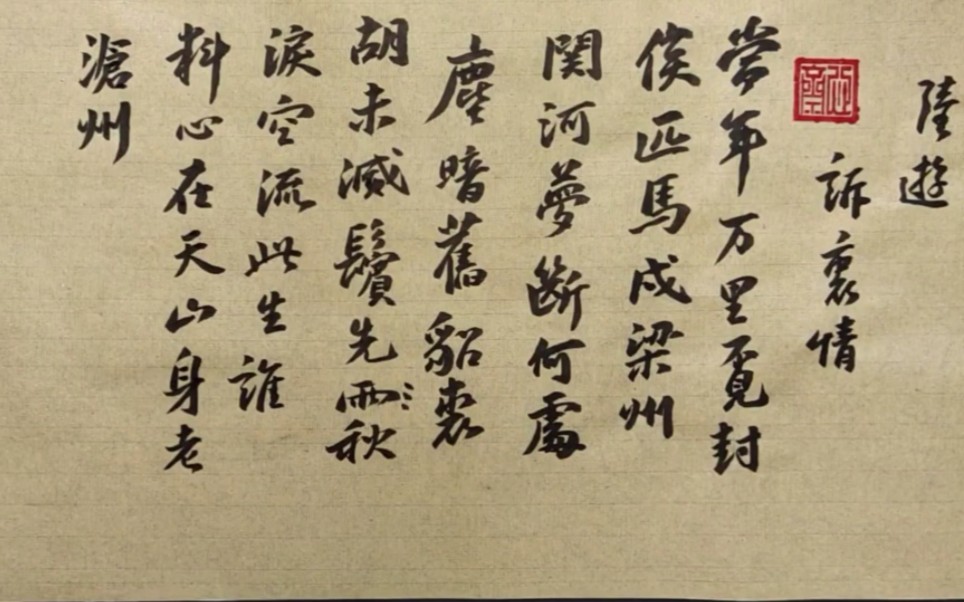 陸遊
訴衷情
當年万里覓封
侯匹馬戍梁州
関河夢斷何處
塵暗舊貂裘
胡未滅鬢先雨秋
淚空流此生誰
料心在天山身老
滄州